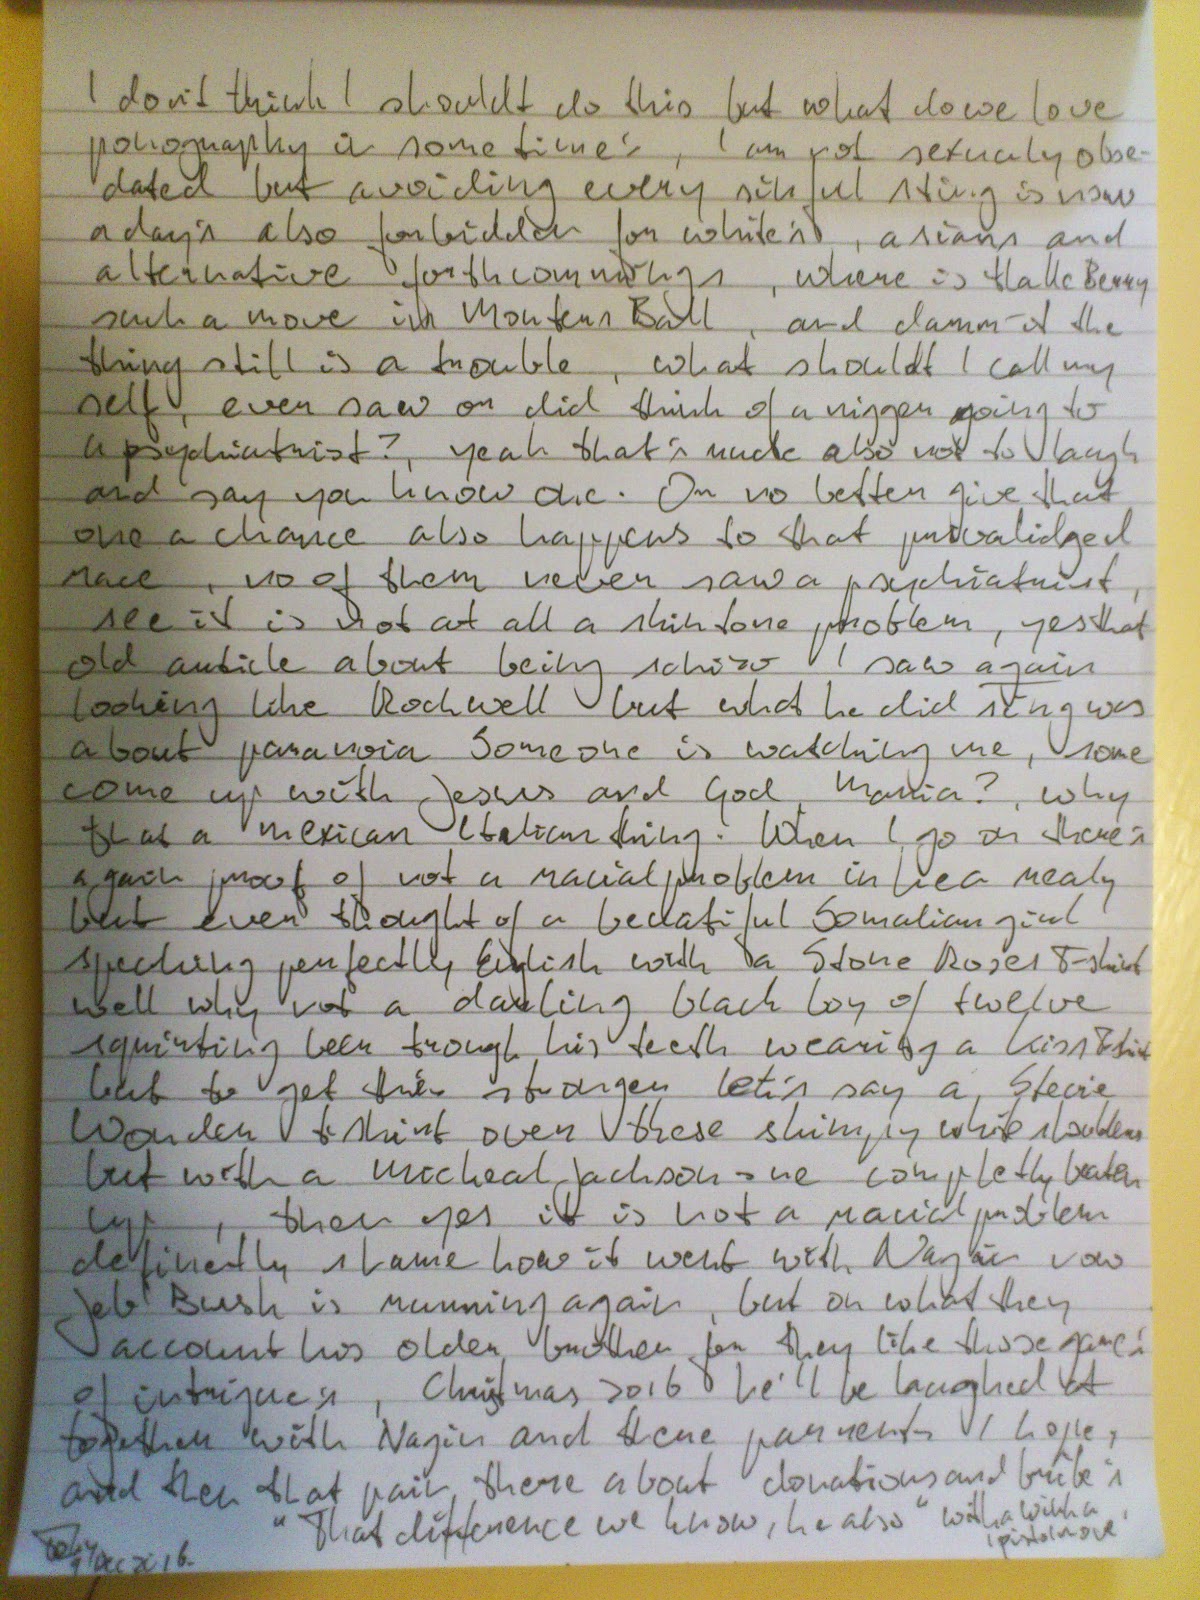 I don't think I shouldt do this but what do we love
ponography is some time's, I am not sexualy obse-
dated but avoiding every sinful sting is now
a day's also forbidden for white's, asians and
alternative forthcommings, where is Halle Berry
such a move in Monters Ball, and damm-it the
thing still is a trouble, what shouldt I call my
self, ever saw or did think of a nigger going to
a psychiatrist?, yeah that's rude also not to laugh
and say you know one. Or no better give that
one a chance also happens to that privalidged
race, no of them never saw a psychiatrist,
see it is not at all a skintone problem, yes that
old article about being schizo I saw again
looking like Rockwell but what he did sing was
about paranoia Someone is watching me, some
come up with Jesus and God, Maria?, why
that a mexican Italian thing. When I go on there's
again proof of not a racial problem in her realy
but ever thought of a beautiful Somalian girl
speaking perfectly English with a Stone Roses T-shirt
well why not a darling black boy of twelve
squirting beer trough his teeth wearing a Kiss T-shirt
but to get this stranger let's say a Stevie
Wonder t-shirt over these skimpy white shoulders
but with a Micheal Jackson-ne completly beaten
up, then yes it is not a racial problem
definectly shame how it went with Nagin now
Jeb Bush is running again, but on what they
account his older brother for they like those game's
of intrigue's, Christmas 2016 he'll be laughed at
together with Nagin and there parrents I hope,
and then that pair there about donations and bribe's
"That difference we know, he also" with a with a
pistol move
2016.